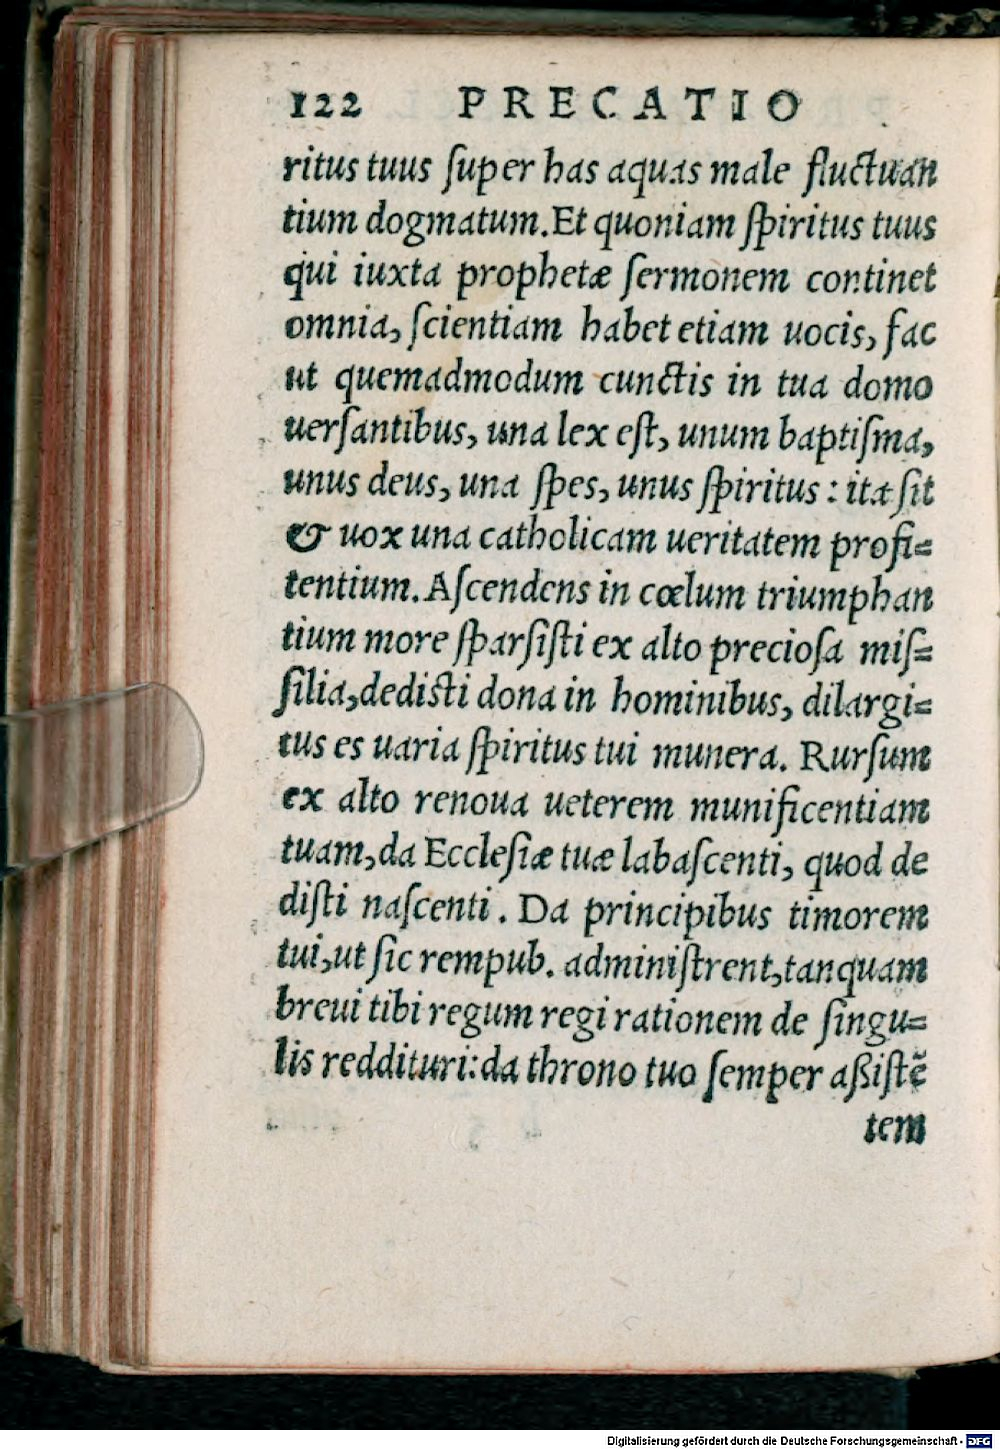 122 PRECATIO
ritus tuus ſuper has aquas male fluctuan
tium dogmatum. Et quoniam ſpiritus tuus
qui iuxta prophetæ ſermonem continet
omnia, ſcientiam habet etiam uocis, fac
ut quemadmodum cunctis in tua domo
uerſantibus, una lex eſt, unum baptiſma,
unus deus, una ſpes, unus ſpiritus: ita ſit
& uox una catholicam ueritatem profi=
tentium. Aſcendens in cœlum triumphan
tium more ſparſiſti ex alto precioſa miſ=
ſilia, dediſti dona in hominibus, dilargi=
tus es uaria ſpiritus tui munera. Rurſum
ex alto renoua ueterem munificentiam
tuam, da Eccleſiæ tuæ labaſcenti, quod de
diſti naſcenti. Da principibus timorem
tui, ut ſic rempub. adminiſtrent, tanquam
breui tibi regum regi rationem de ſingu=
lis reddituri: da throno tuo ſemper aßiſtẽ
tem
Digitalisierung gefördert durch die Deutsche Forschungsgemeinschaft - DFG